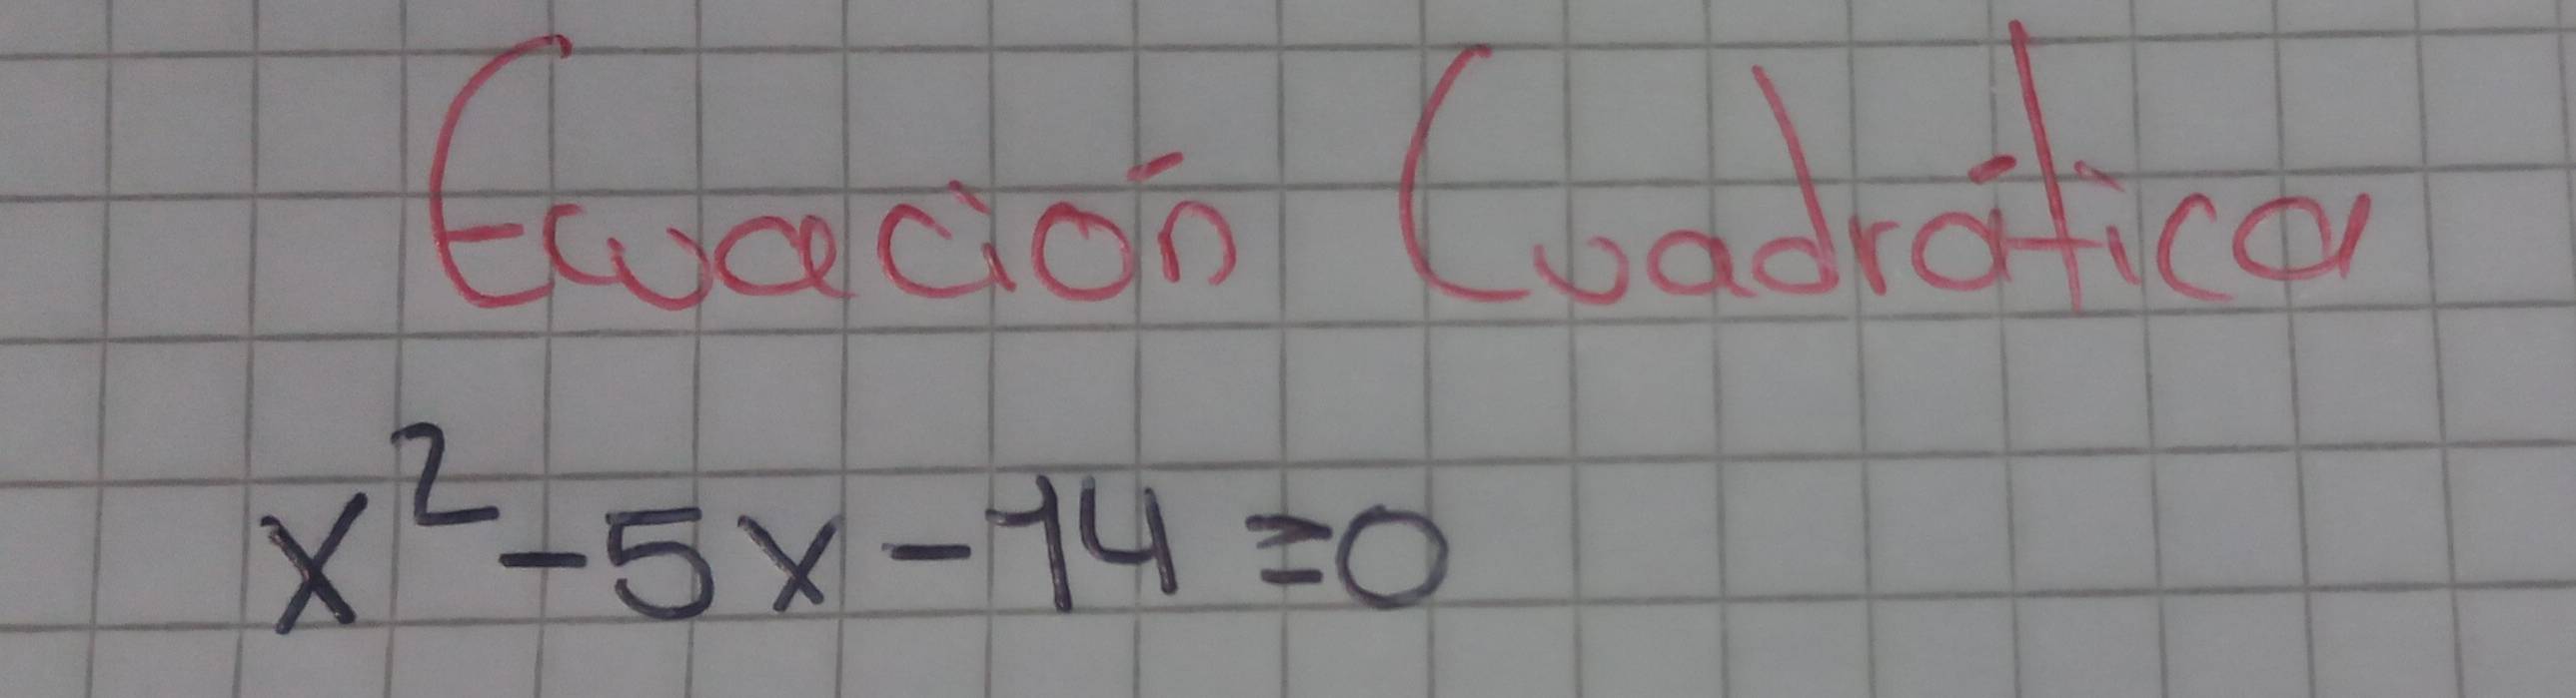 Ecuación Cuadrática
x² - 5x - 14 = 0